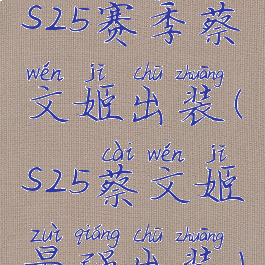 S25赛季蔡
wén jī chū zhuāng
文姬出装(
cài wén jī
S25蔡文姬
zuì qiáng chū zhuāng
最强出装)